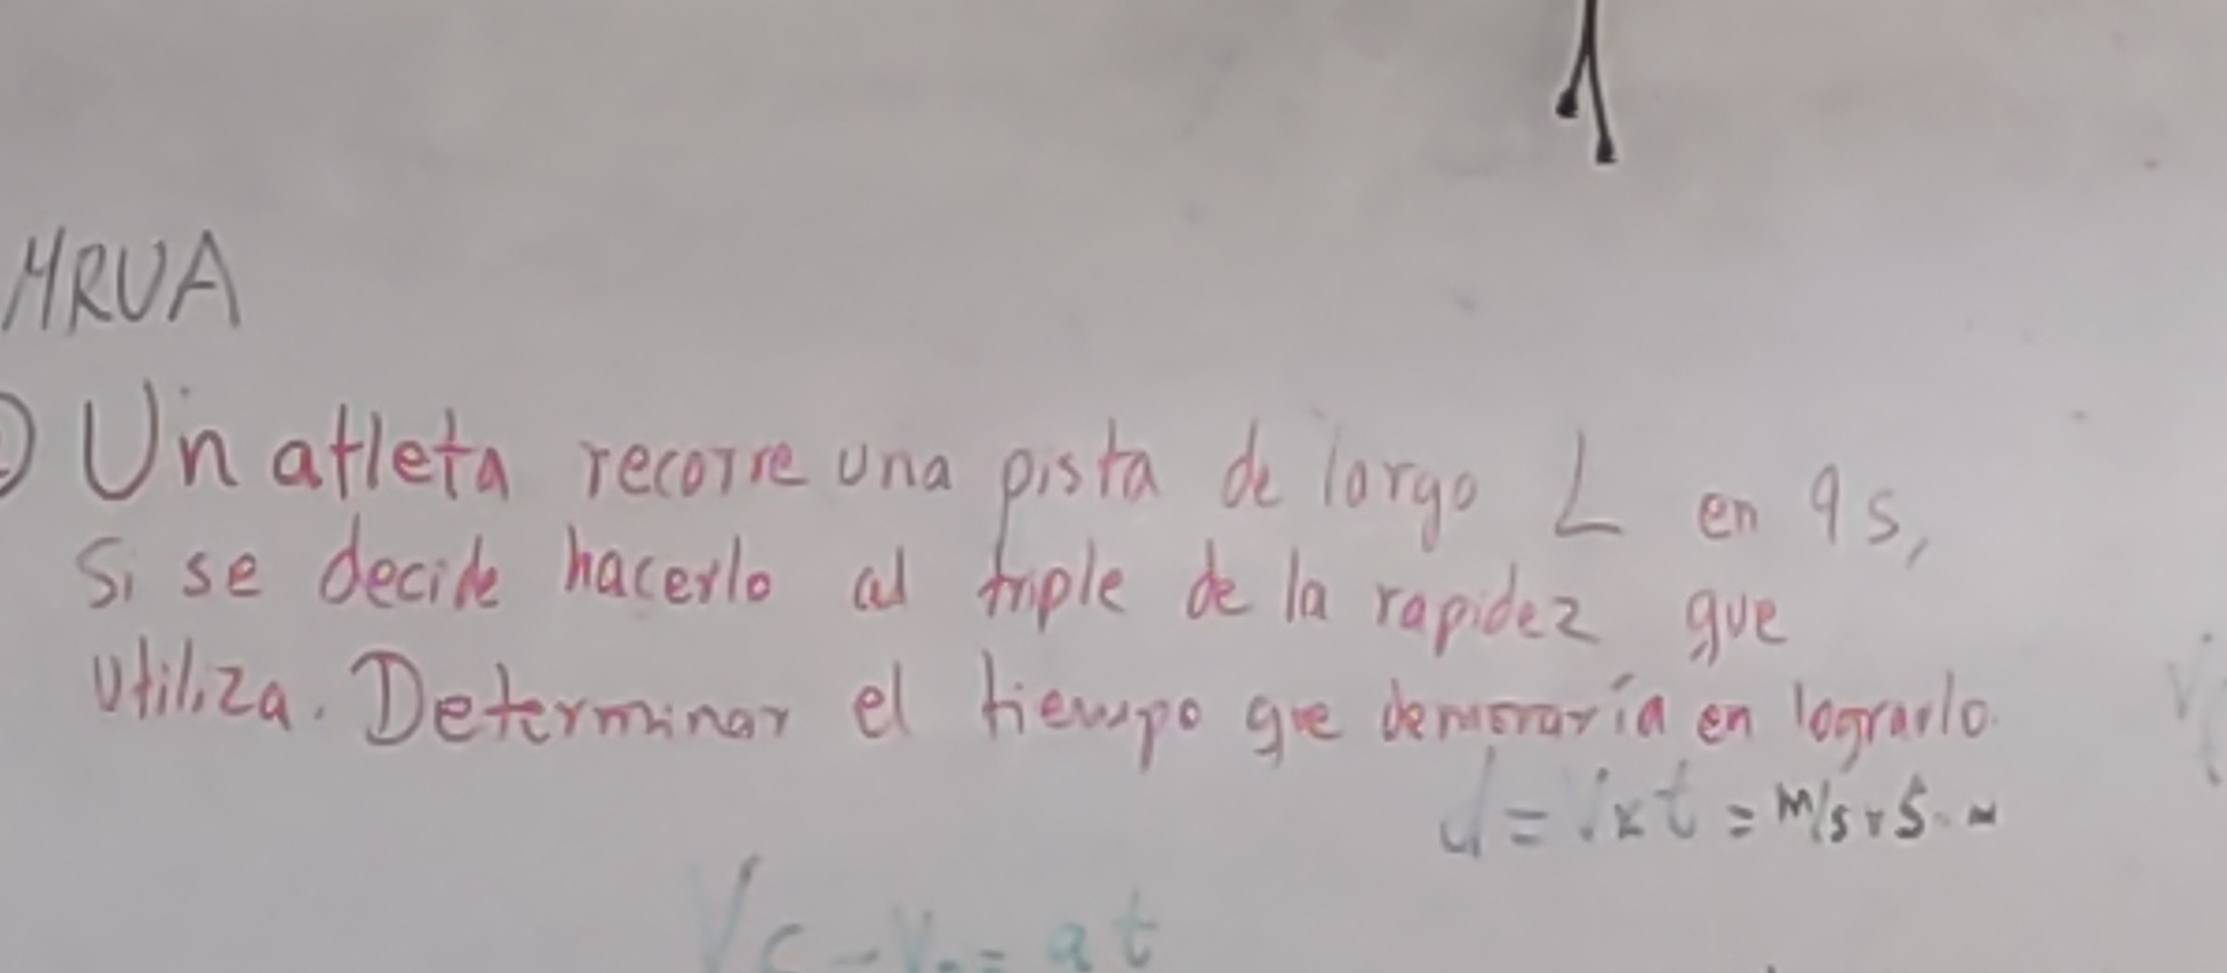 MRUA
Un atleta recorre una pista de largo L en 9s,
Si se decide hacerlo al triple de la rapidez que
utiliza. Determinar el tiempo que demoraría en lograrlo.
d = V x t = m/s x s
Vf - Vo = at